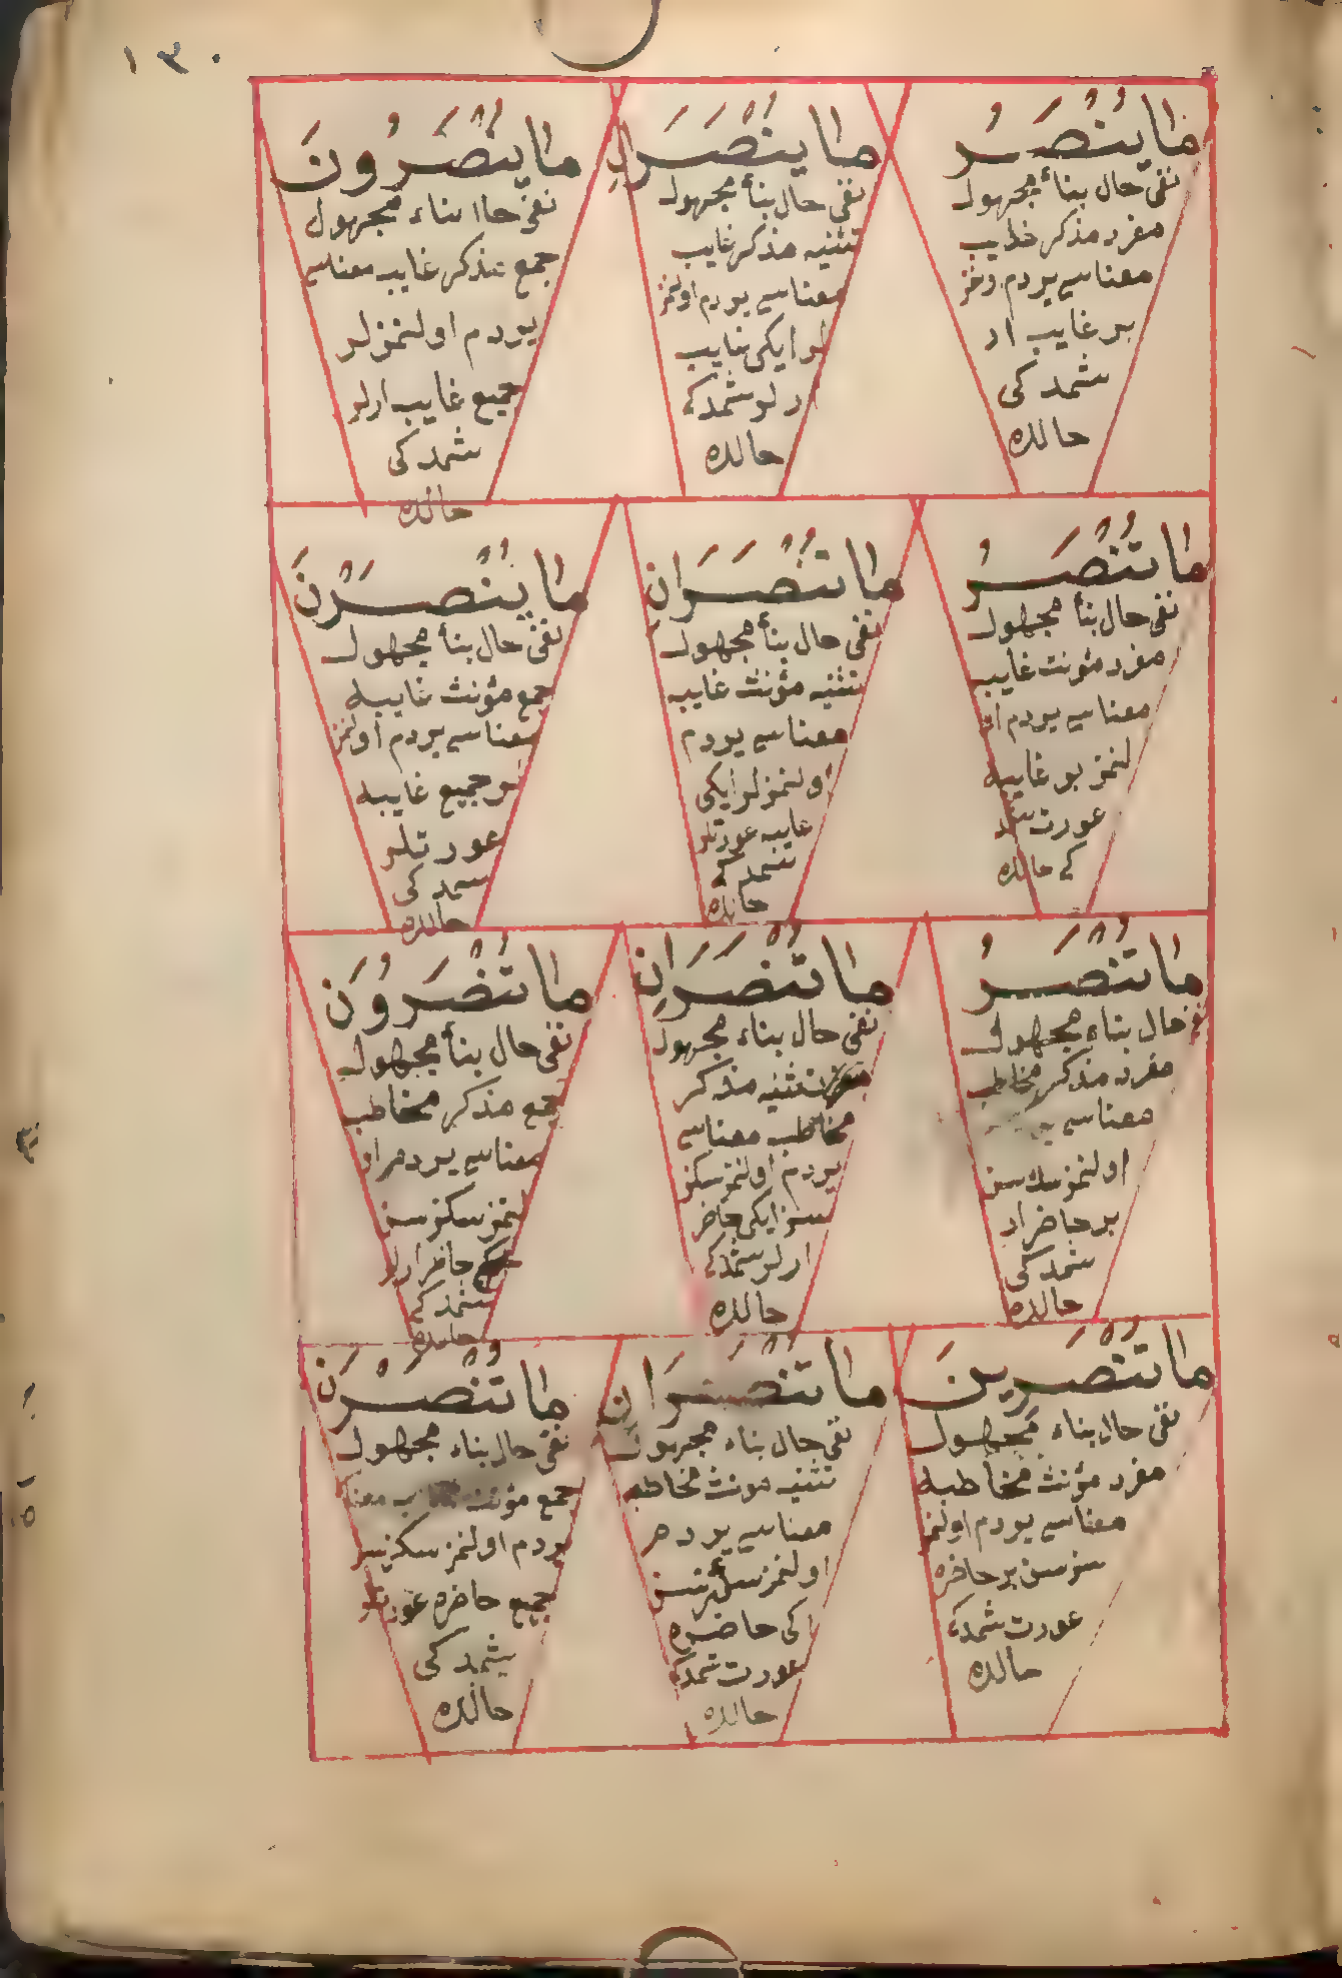 ١٣٠
مَا يُنْصَرُ
نفی حال بنأ مجهول
مفرد مذكر غایب
معناسی یردم اولنمز
بر غایب ار
شمدكی
حالده
مَا يُنْصَرَانِ
نفی حال بنأ مجهول
تثنیه مذكر غایب
معناسی یردم اولنمز
لر ایكی غایب
ار لر شمدكی
حالده
مَا يُنْصَرُونَ
نفی حال بناء مجهول
جمع مذكر غایب معناسی
یردم اولنمزلر
جمیع غایب ارلر
شمدكی
حالده
مَا تُنْصَرُ
نفی حال بنأ مجهول
مفرد مؤنث غایبه
معناسی یردم او
لنمز بر غایبه
عورت شمد
كی حالده
مَا تُنْصَرَانِ
نفی حال بنأ مجهول
تثنیه مؤنث غایبه
معناسی یردم
اولنمزلر ایكی
غایبه عورتلر
شمدكی
حالده
مَا يُنْصَرْنَ
نفی حال بنأ مجهول
جمع مؤنث غایبه
معناسی یردم اولنمز
لر جمیع غایبه
عورتلر
شمدكی
حالده
مَا تُنْصَرُ
نفی حال بناء مجهول
مفرد مذكر مخاطب
معناسی
اولنمزسك سن
بر حاضر ار
شمدكی
حالده
مَا تُنْصَرَانِ
نفی حال بناء مجهول
تثنیه مذكر
مخاطب معناسی
یردم اولنمزسكز
سز ایكی حاضر
ارلر شمدكی
حالده
مَا تُنْصَرُونَ
نفی حال بنأ مجهول
جمع مذكر مخاطب
معناسی یردم او
لنمزسكز سز
حاضر ارلر
شمدكی
حالده
مَا تُنْصَرِينَ
نفی حال بناء مجهول
مفرد مؤنث مخاطبه
معناسی یردم اولنمز
سن سن بر حاضره
عورت شمدكی
حالده
مَا تُنْصَرَانِ
نفی حال بناء مجهول
تثنیه مؤنث مخاطبه
معناسی یردم
اولنمزسكز سز
كی حاضره
عورت شمدكی
حالده
مَا تُنْصَرْنَ
نفی حال بناء مجهول
جمع مؤنث
یردم اولنمزسكز سز
جمیع حاضره عورتلر
شمدكی
حالده